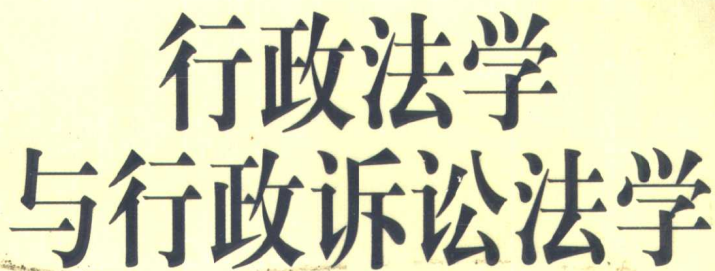 行政法学
与行政诉讼法学